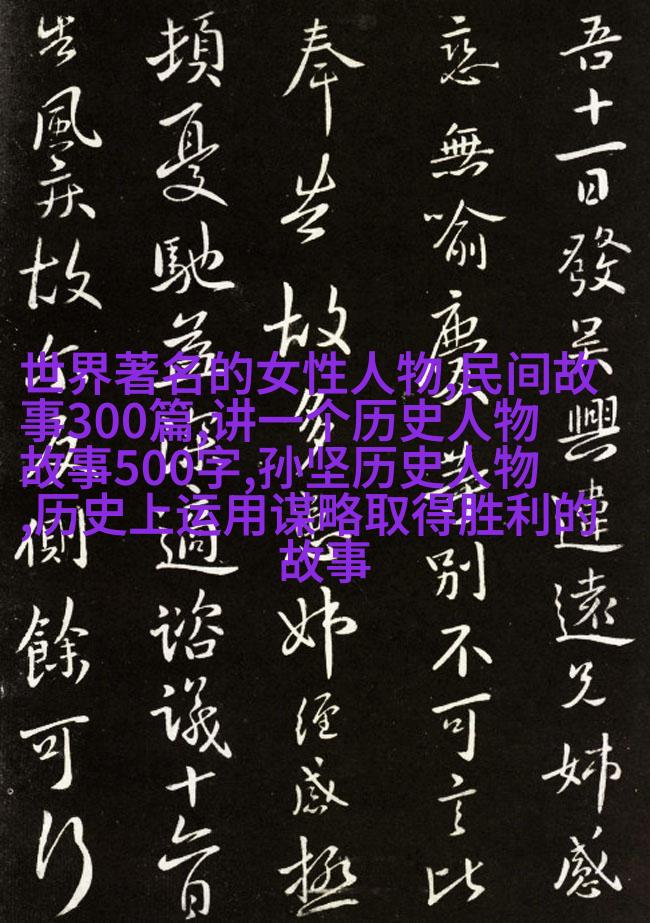 世界著名的女性人物,民间故
事300篇,讲一个历史人物
故事500字,孙坚历史人物
,历史上运用谋略取得胜利的
故事
吾十一日發吴興違遠兄姊感
戀無喻等別不可言比
奉告故多姊經感極
頓憂馳益深適諮議十六日
告風疾故反側餘可行